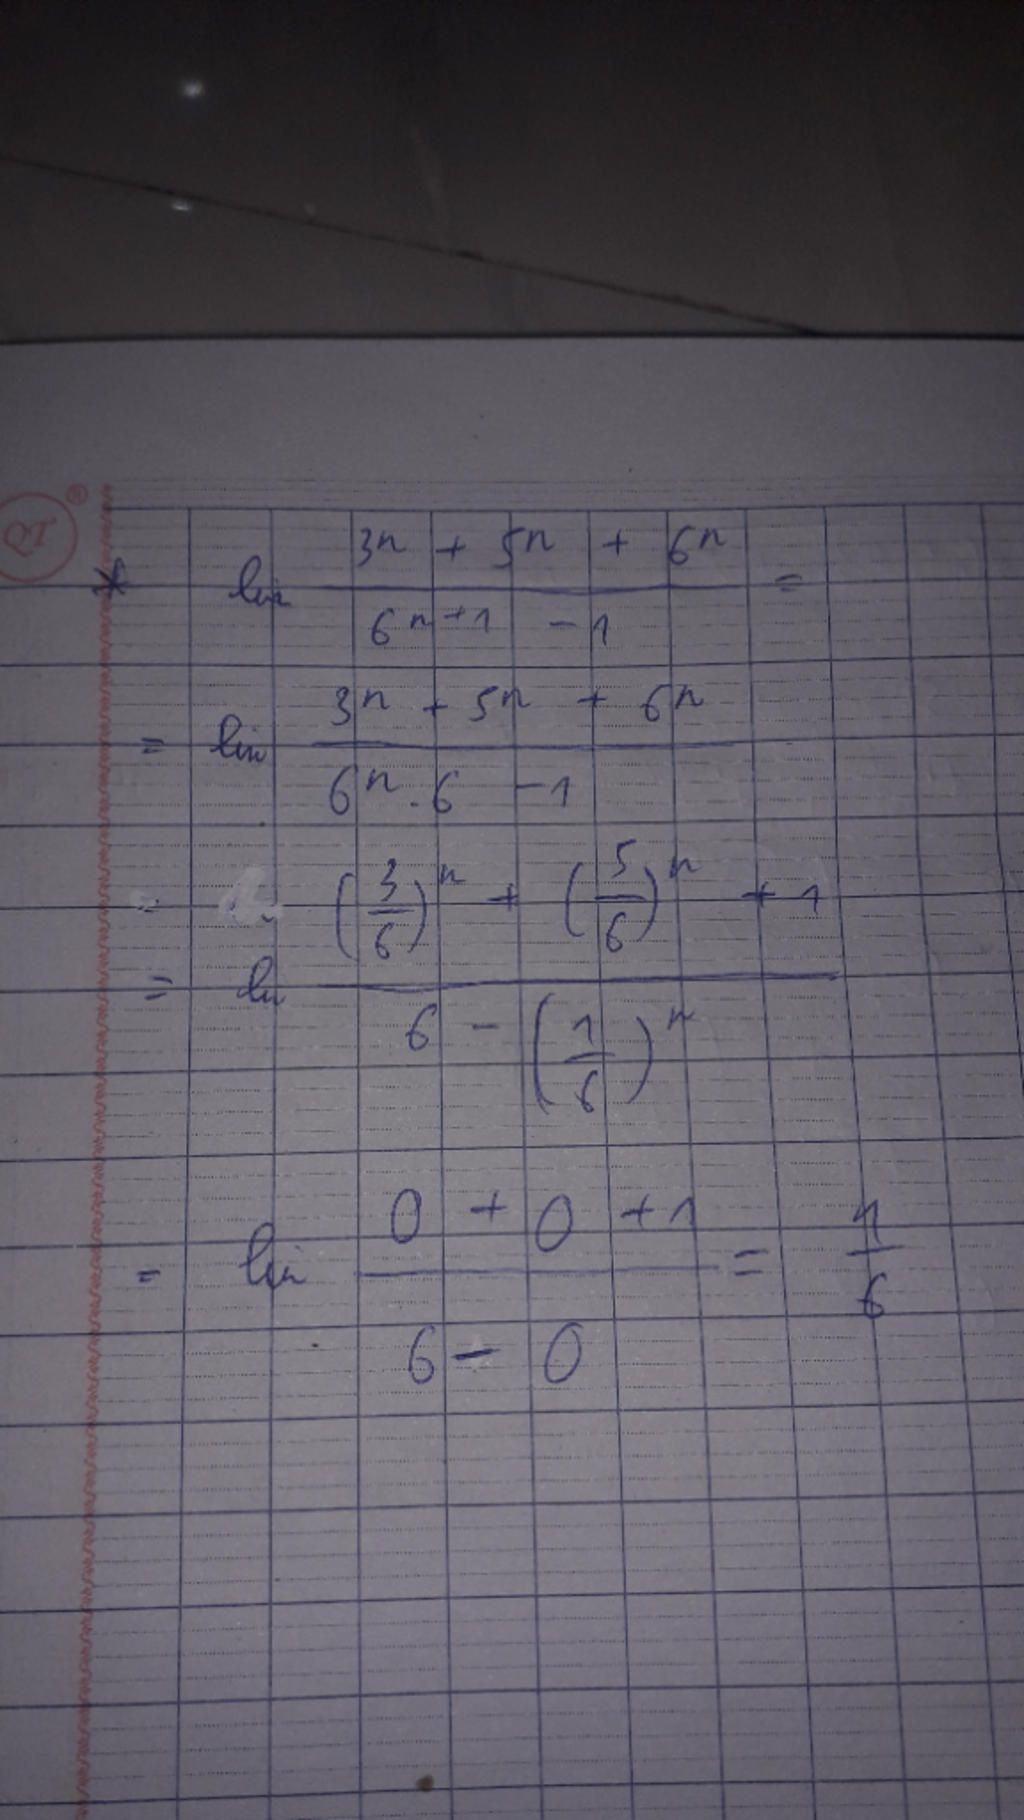 * lim (3^n + 5^n + 6^n) / (6^(n+1) - 1) =
= lim (3^n + 5^n + 6^n) / (6^n . 6 - 1)
= lim ((3/6)^n + (5/6)^n + 1) / (6 - (1/6)^n)
= lim (0 + 0 + 1) / (6 - 0) = 1/6